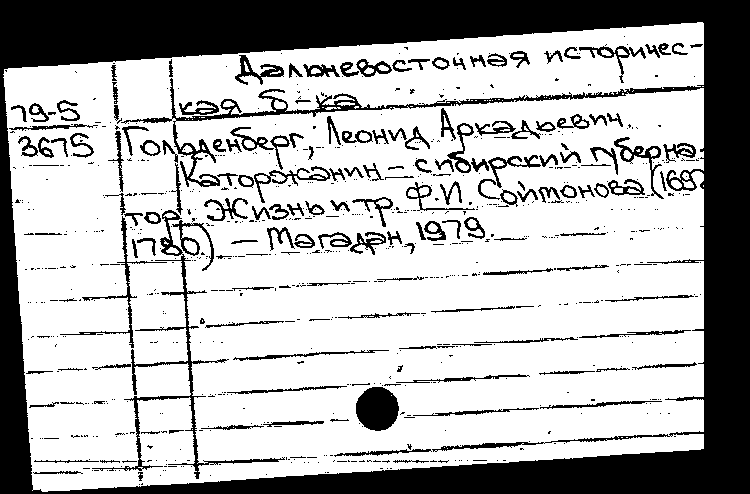 Дальневосточная историчес-
79-5 кая б-ка.
3675 Гольденберг, Леонид Аркадьевич.
Каторжанин – сибирский губерна-
тор: Жизнь и тр. Ф.И. Соймонова (1692
1780) – Магадан, 1979.